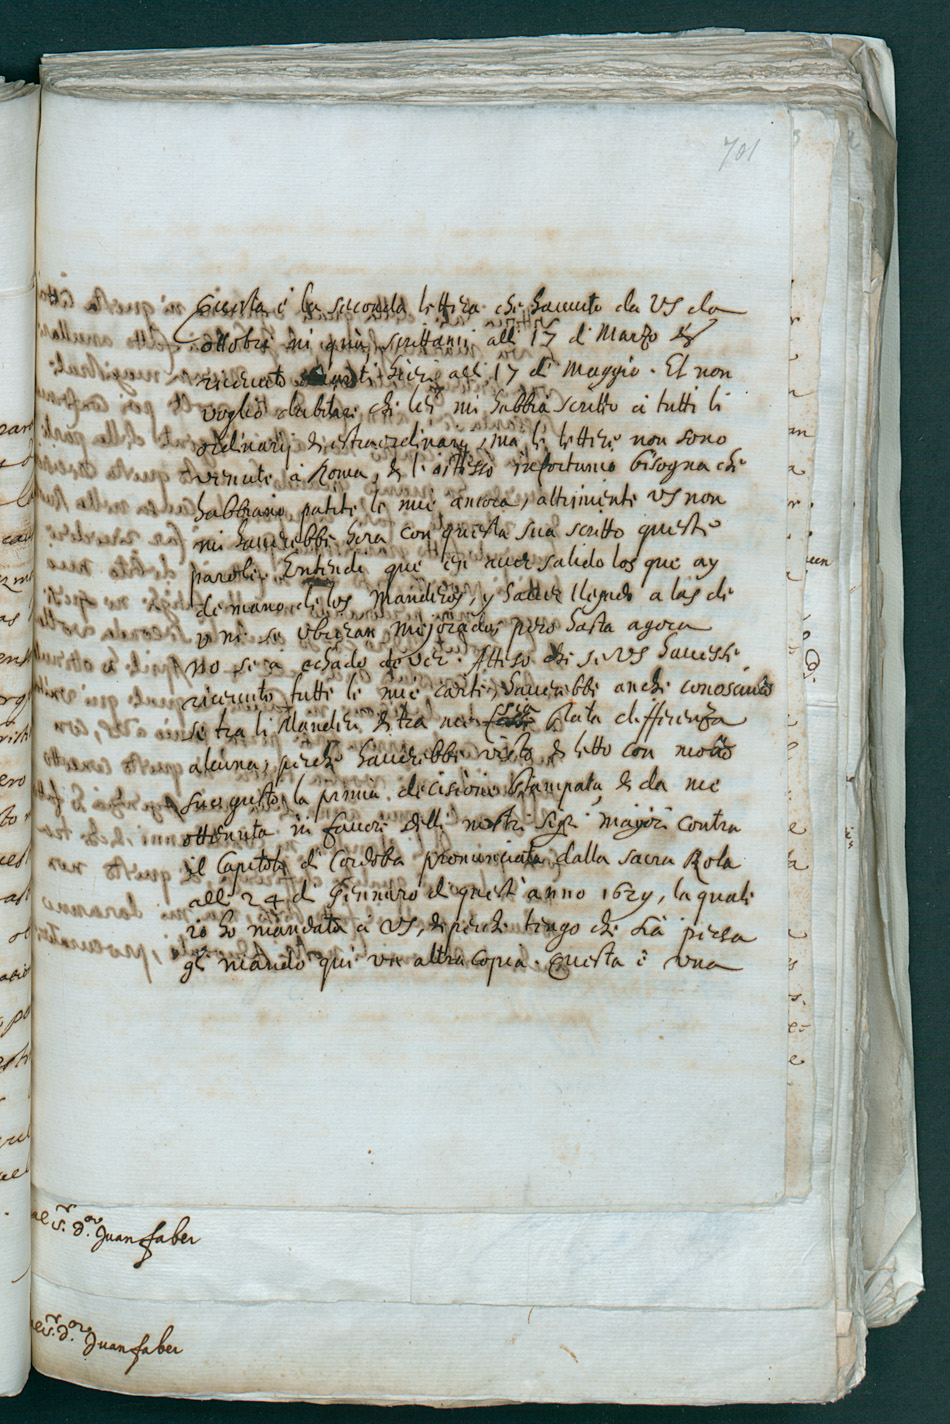 701
Questa è la seconda lettera che havuto da VS da
ottobre in quà, scrittami all 17 di Marzo &
ricevuta hieri all 17 di Maggio. Et non
voglio dubitare che lei mi habbia scritto a tutti li
ordinarij & estraordinarij, ma le lettere non sono
venute à Roma, & l'istesso infortunio bisogna che
habbiano patite le mie ancora, altrimente VS non
mi haverebbe hora con questa sua scritto queste
parole. Entiendo que en aver salido los que ay
de mano de los Manderos, y haver llegado a las de
vm se ubieran mejorados pero hasta agora
no se à echado de ver. Atteso che se VS havesse
ricevuto tutte le mie carte, haverebbe anche conosciuto
se tra li Manderi & tra me stata differenza
alcuna, perche haverebbe visto & letto con molto
suo gusto la prima decisione stampata, & da me
ottenuta in favore delli nostri Sigri majori contra
il Capitolo di Cordoba pronunciata dalla Sacra Rota
alli 24 di Gennaro di quest'anno 1629, la quale
io ho mandata à VS, & perche tengo che sia persa
gli mando qui un altra copia. Questa è una
al Sr. Dor Juan faber
al Sr. Dor Juan faber